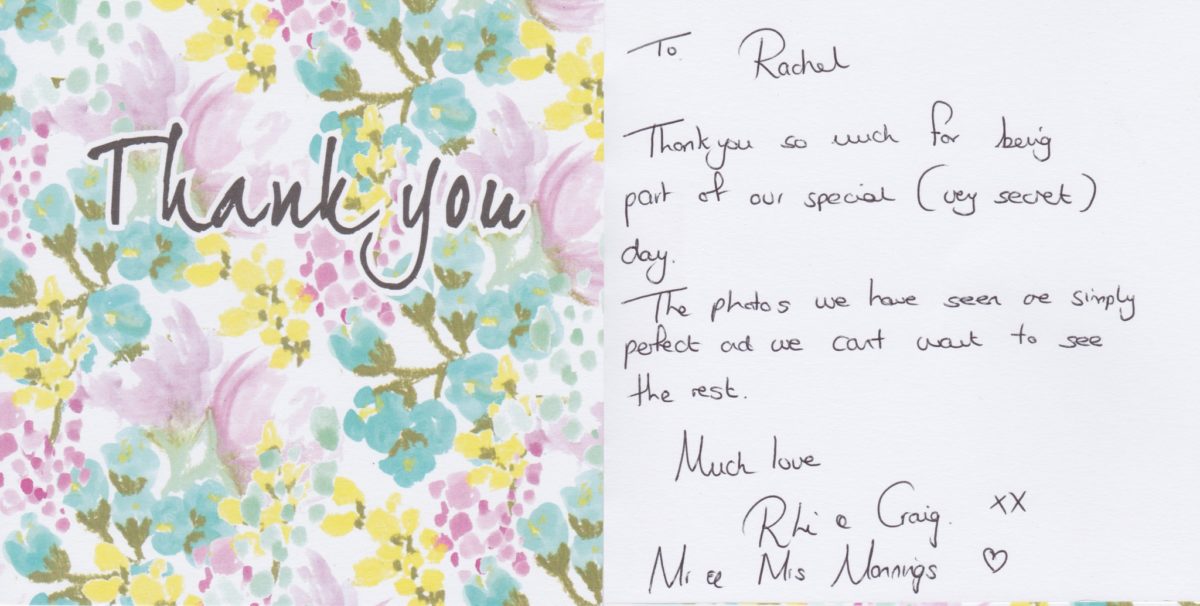 Thank you
To Rachel
Thankyou so much for being
part of our special (very secret)
day.
The photos we have seen are simply
perfect and we can't wait to see
the rest.
Much love
Rhi & Craig. xx
Mr & Mrs Mannings ♡